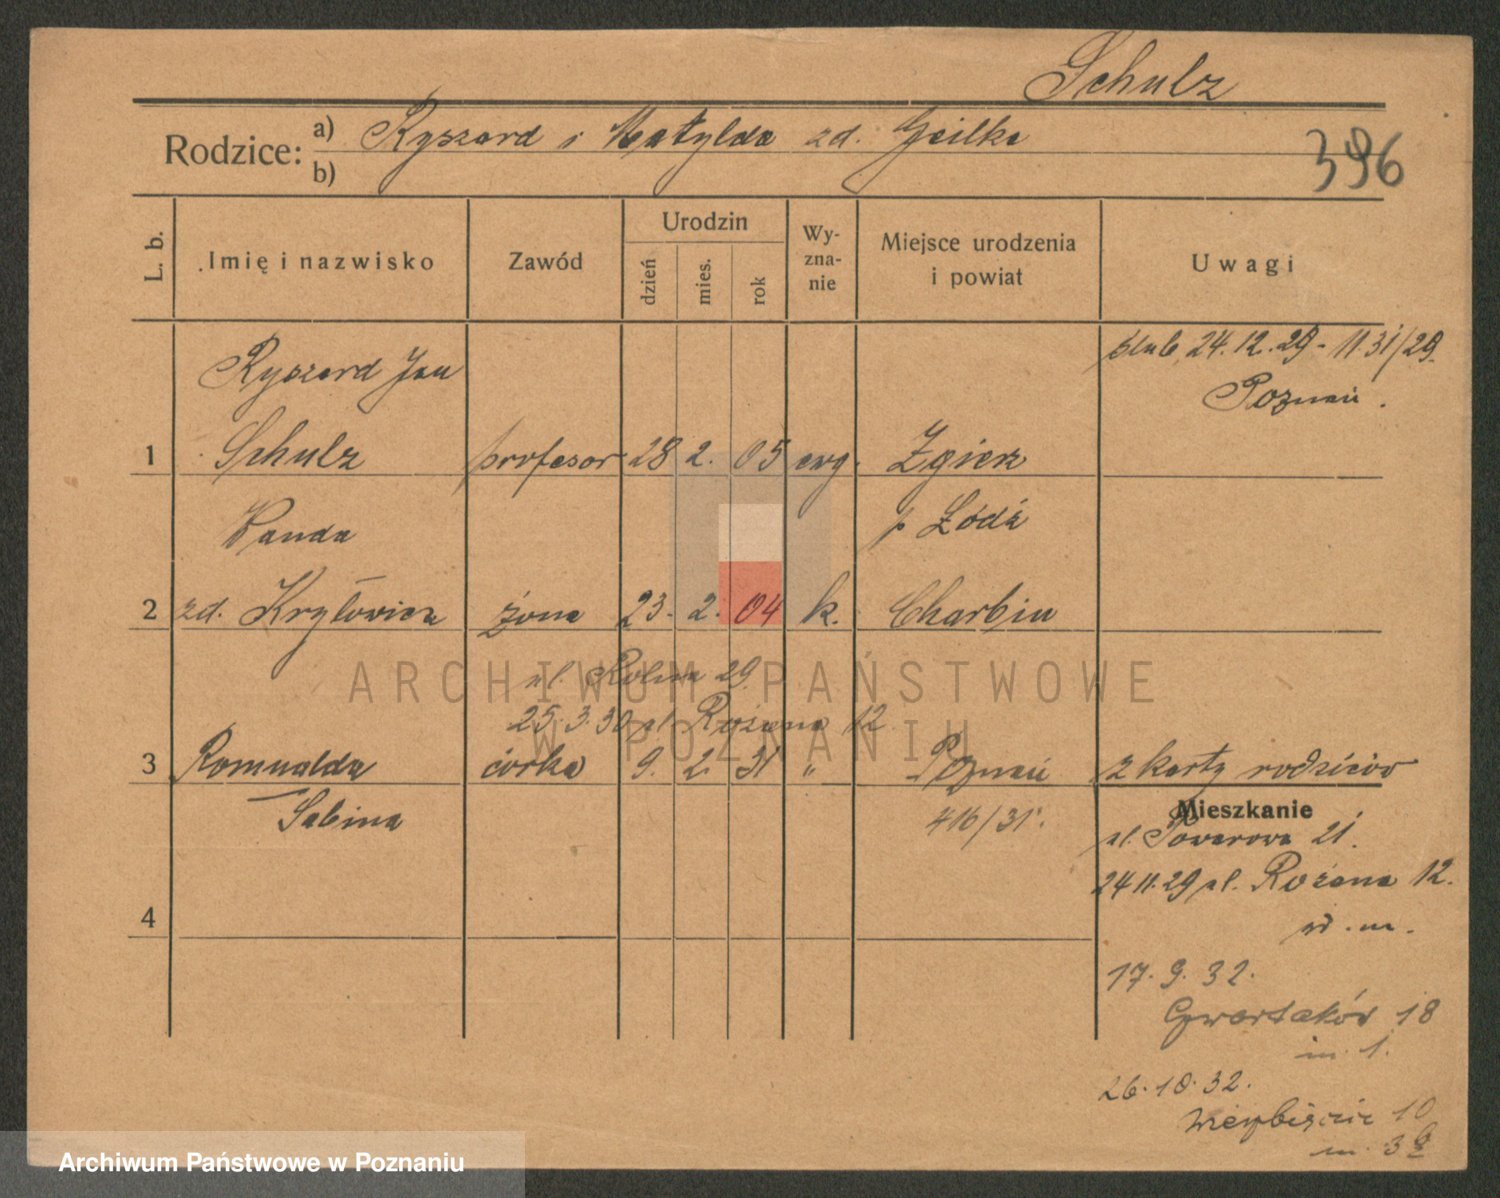 Schulz
Rodzice: a) Ryszard i Matylda zd. Geilke
b)
396
L. b. Imię i nazwisko Zawód Urodzin dzień mies. rok Wy-zna-nie Miejsce urodzenia i powiat Uwagi
ślub, 24.12.29 - 1131/29.
Poznań.
Ryszard Jan
1 Schulz profesor 28 2. 05 ewg. Zgierz
Wanda p Łódź
2 zd. Kryłowicz żona 23. 2. 04 k. Charbin
ul. Rolna 29.
25.3.30 ul. Różana 12
3 Romualda córka 9. 2. 31 " Poznań z karty rodziców
Sabina 416/31.
Mieszkanie
ul. 21.
24 11.29 ul. Różana 12.
4
17. 9. 32.
Czwartaków 18
m. 1.
26.10.32.
Wierzbięcic 10
m. 38
ARCHIWUM PAŃSTWOWE
W POZNANIU
Archiwum Państwowe w Poznaniu